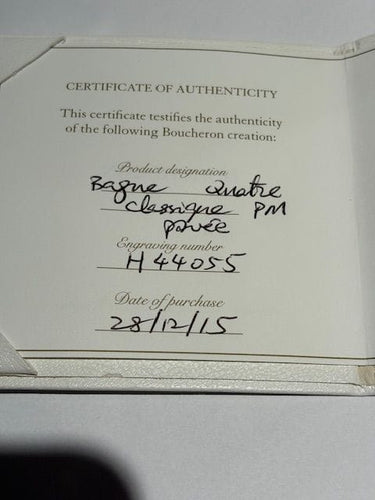 CERTIFICATE OF AUTHENTICITY
This certificate testifies the authenticity
of the following Boucheron creation:
Product designation
Bague Quatre
classique PM
pavée
Engraving number
H44055
Date of purchase
28/12/15